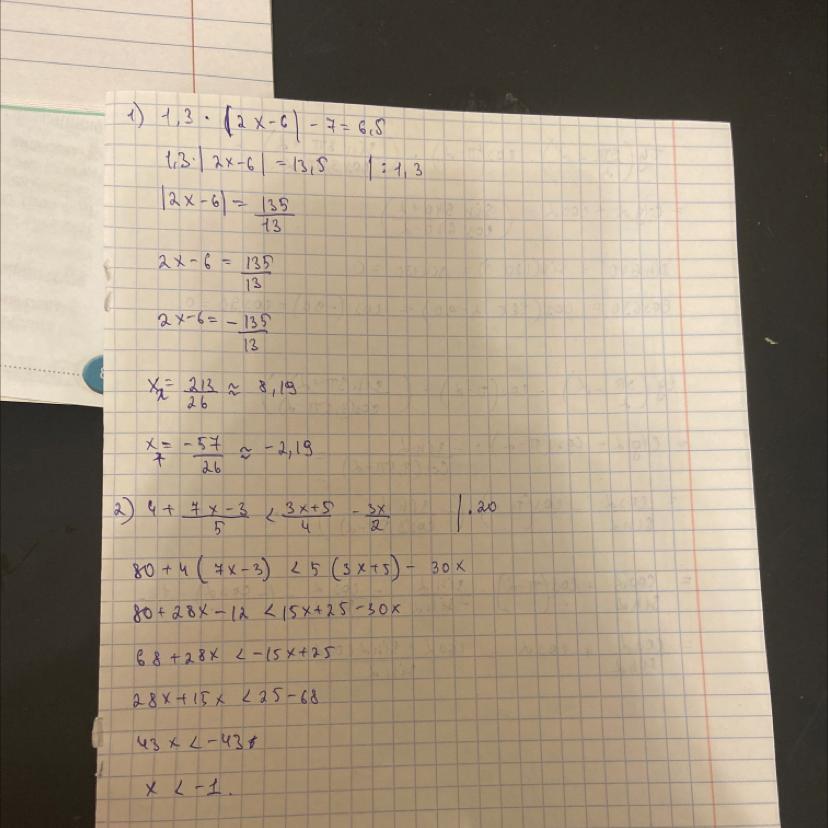 1) 1,3 · |2x-6| - 7 = 6,5
1,3·|2x-6| = 13,5 |:1,3
|2x-6| = 135/13
2x-6 = 135/13
2x-6 = -135/13
x = 213/26 ≈ 8,19
x = -57/26 ≈ -2,19
2) 4 + 7x-3/5 < 3x+5/4 - 3x/2 |·20
80+4(7x-3) < 5(3x+5) - 30x
80+28x-12 < 15x+25-30x
68+28x < -15x+25
28x+15x < 25-68
43x < -43
x < -1.